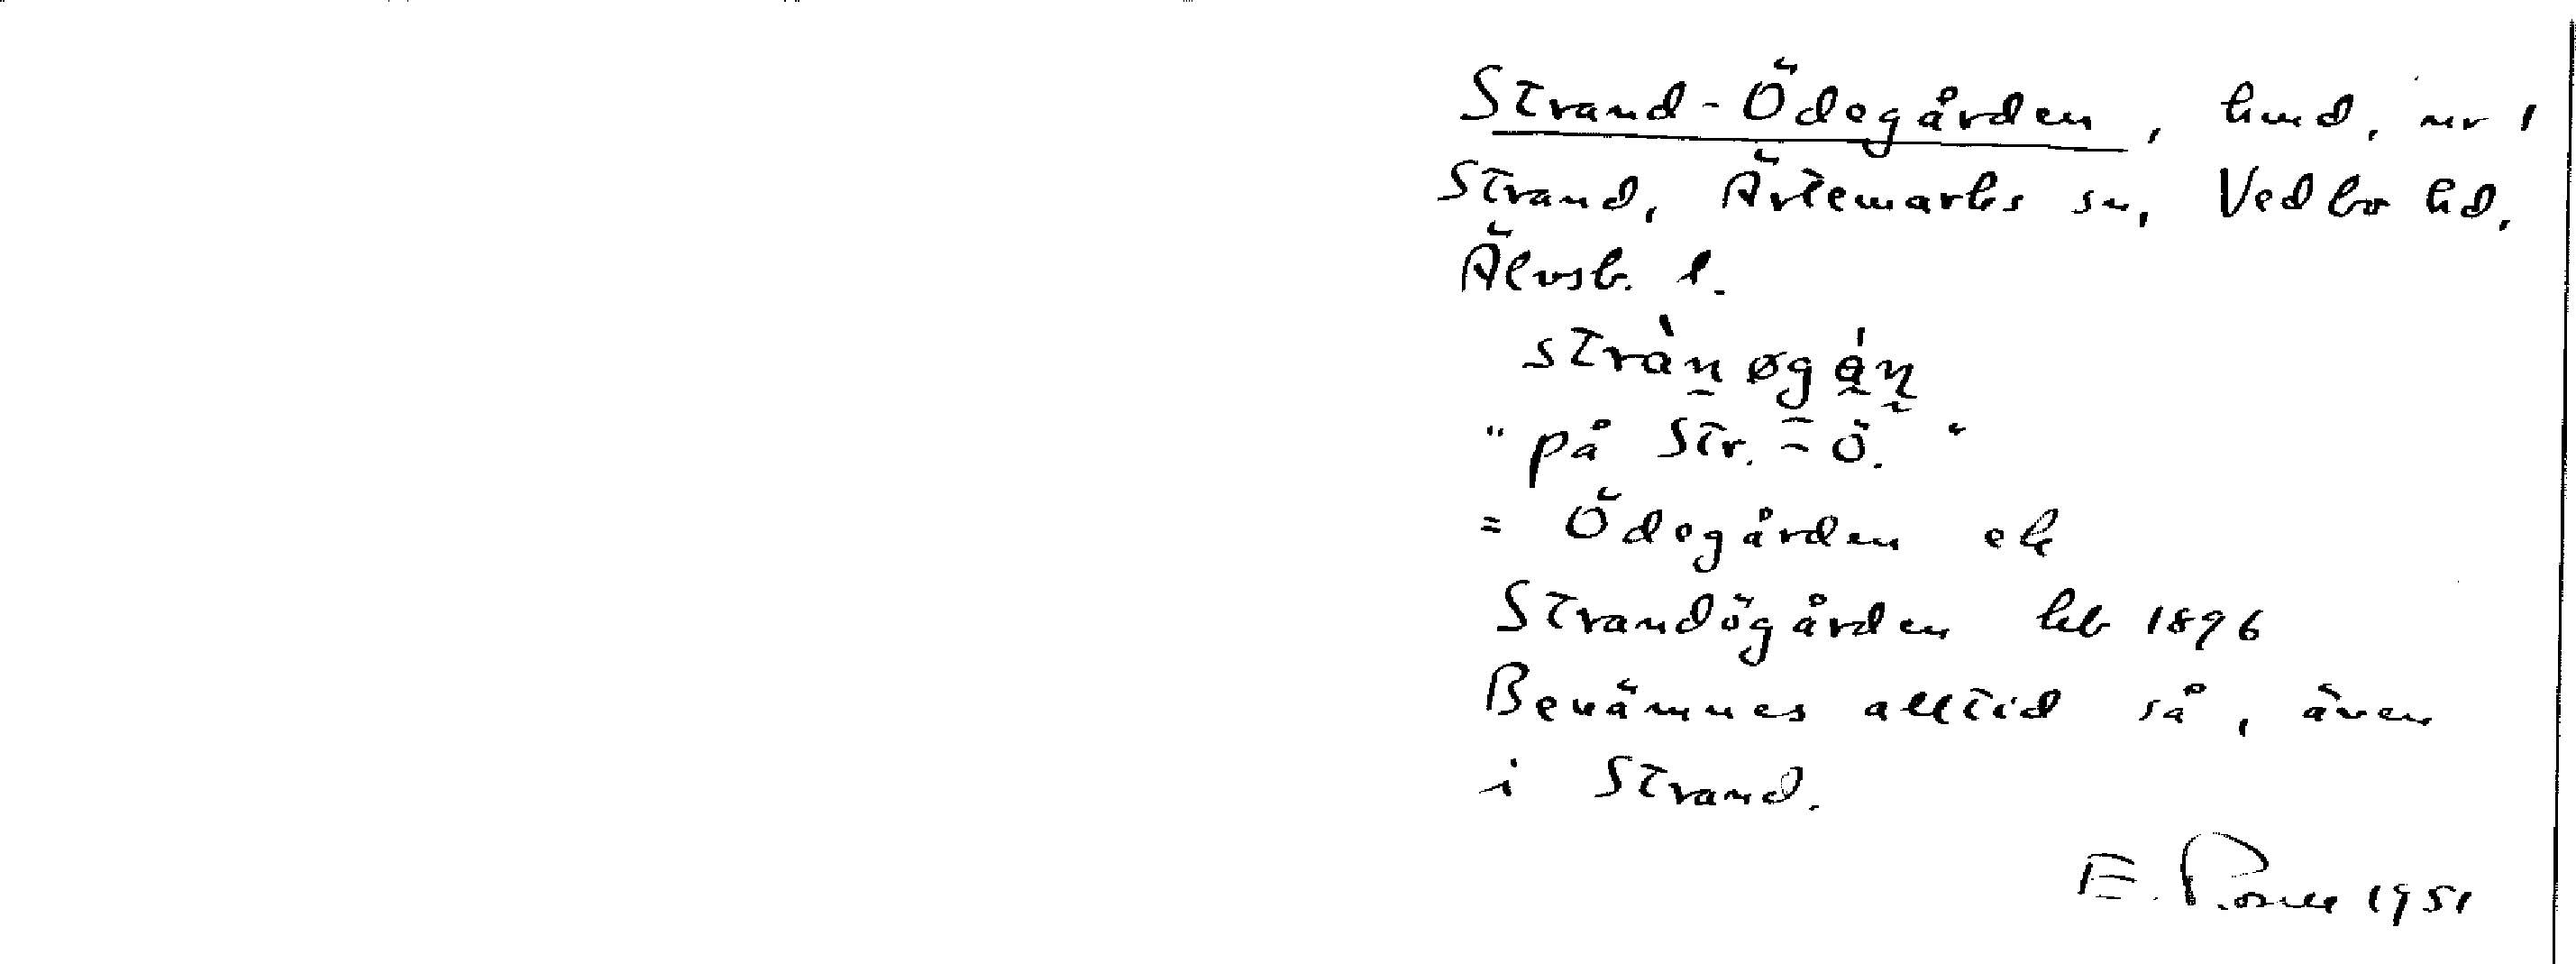 Strand-Ödegården, hmd. nr 1
Strand, Ärtemarks sn, Vedbo hd.
Älvsb. l.
strànøgán
"på Str.-Ö."
= Ödegården ek
Strandögården hb 1896
Benämnes alltid så, även
i Strand.
E. 1951